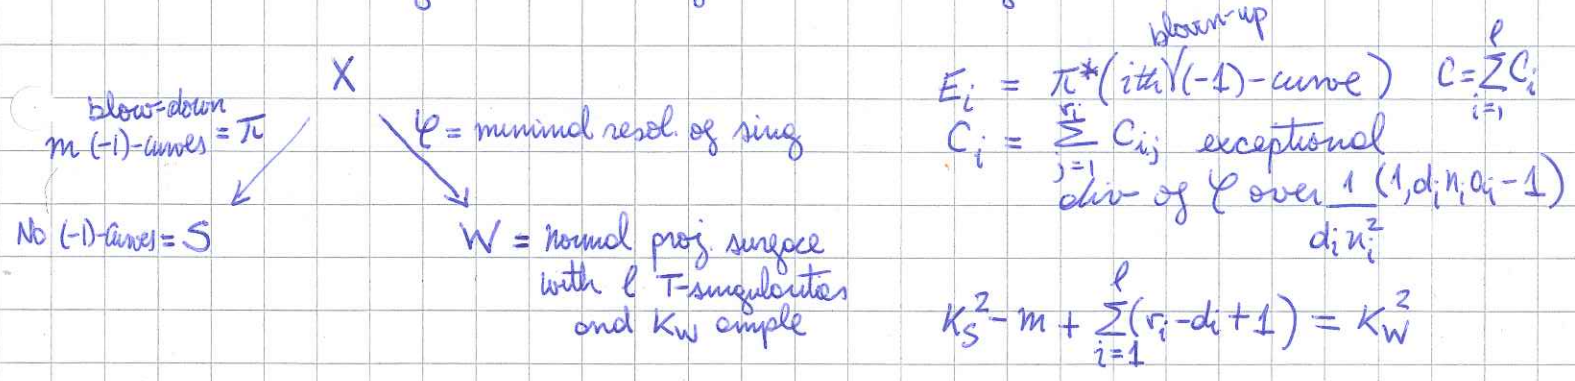 X
blow-down
m (-1)-curves = π
φ = minimal resol. of sing
No (-1)-curves = S
W = normal proj. surface
with l T-singularities
and K_W ample
blown-up
E_i = π*(ith (-1)-curve) C = Σ_{i=1}^{l} C_i
C_i = Σ_{j=1}^{r_i} C_{i,j} exceptional
div of φ over 1/(d_i n_i^2) (1, d_i n_i a_i - 1)
K_S^2 - m + Σ_{i=1}^{l} (r_i - d_i + 1) = K_W^2